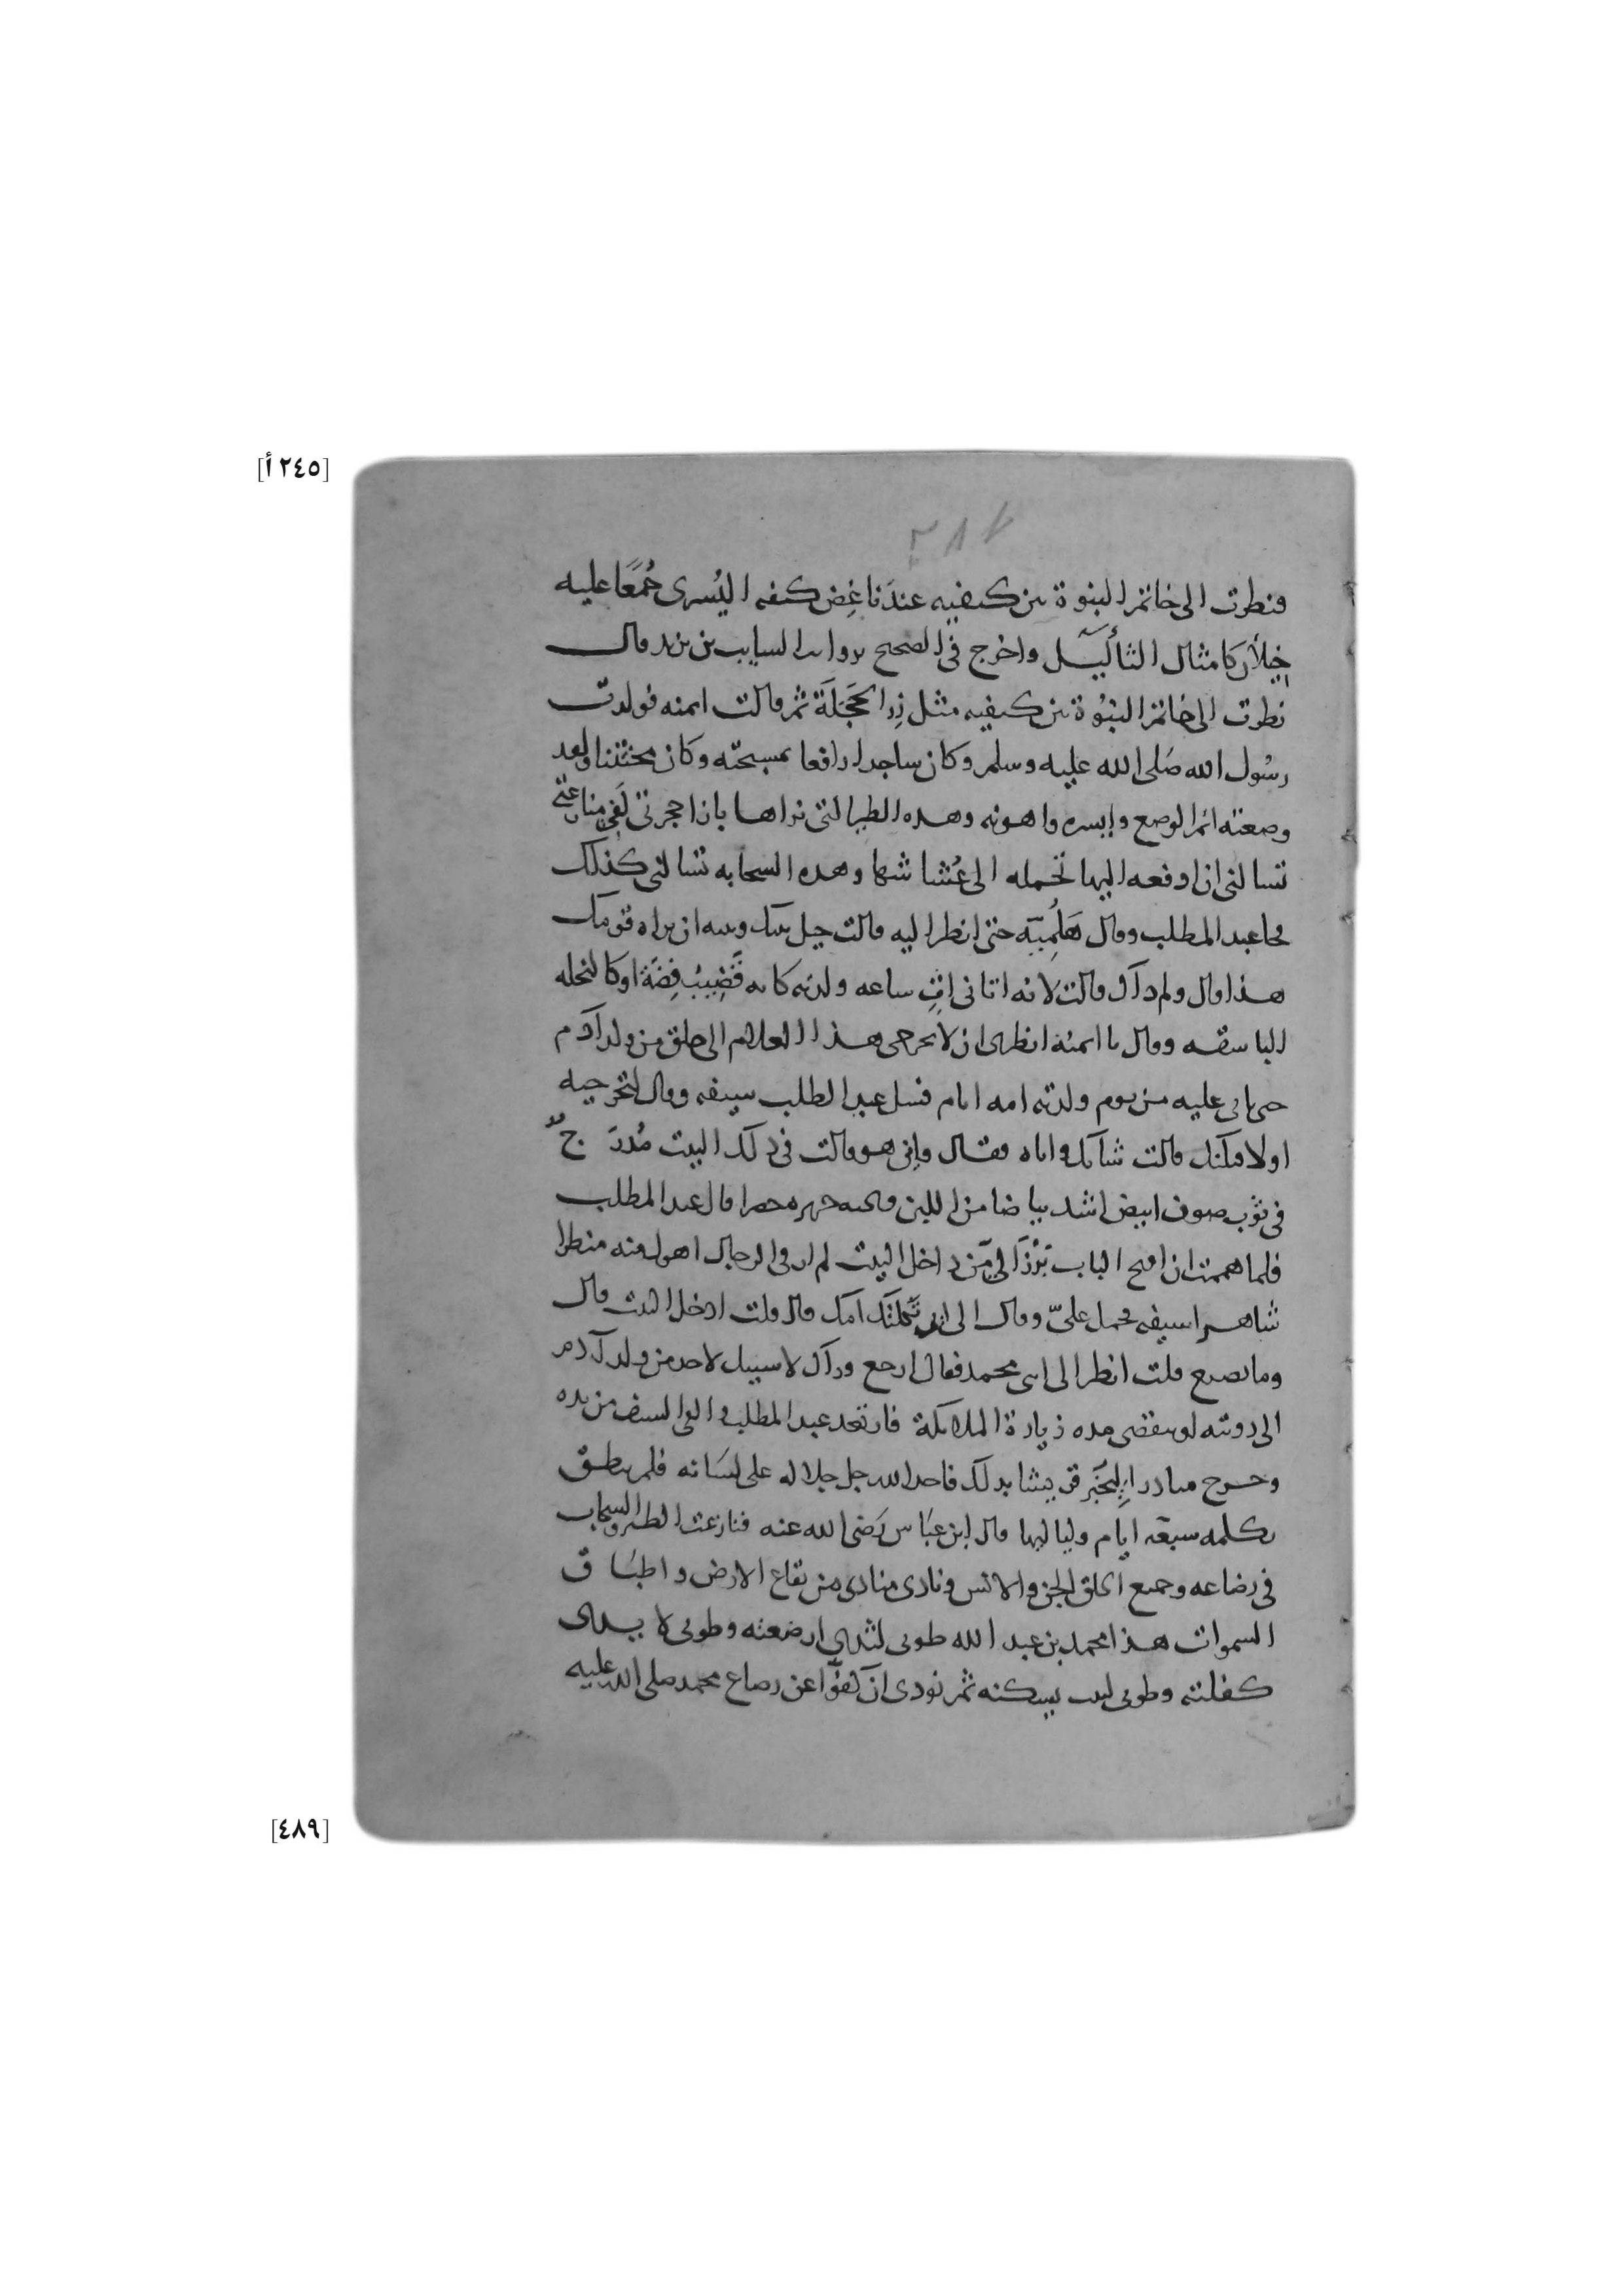 [٢٤٥ أ]
٢٨٧
فنظرت الى خاتم النبوة بين كتفيه عند ناغض كتفه اليُسرى جُمعًا عليه
خيلان كامثال الثآليل واخرج فى الصحيح من السايب بن يزيد قال
نظرت الى خاتم النبُوة بين كتفيه مثل زِر الحَجَلَة ثم قالت امنه فولدت
رسُول الله صَلى الله عليه وسلم وكان ساجدا رافعا مسبحته وكان مختتنا ولقد
وضعته اتم الوضع وايسره واهونه وهذه الطير التى تراها بازا حجرتى لفى منازعتى
تسالنى ان ادفعه اليها تحمله الى عُشاشها وهذه السحابه تسالنى كذلك
فجا عبد المطلب وقال هَلُمِيّه حتى انظر اليه قالت حيل بينك وبينه ان تراه فى يومك
هذا قال ولم ذاك قالت لانه اتانى اتٍ ساعه ولدته كانه قَضِيبُ فِضَة او كالنخله
الباسقه وقال يا امنه انظرى ان لا تخرجى هذا الغلام الى خلق من ولد آدم
حتى ياتى عليه من يوم ولدته امه ايام فسل عبد المطلب سيفه وقال لتخرجيه
اولا قتلنك قالت شانك واياه فقال واين هو قالت فى ذلك البيت مُدرَجٌ
فى ثوب صوف ابيض اشد بياضا من اللبن وتحته حريره خضرا قال عبد المطلب
فلما هممت ان افتح الباب بَرَزَ الىّ مَن داخل البيت لم ار فى الرجال اهول منه منظرا
شاهرا سيفه فحمل علىّ وقال الى اين ثَكِلتك امك قال قلت ادخل البيت قال
وما تصنع قلت انظر الى ابنى محمد فقال ارجع وراك لا سبيل لاحد من ولد آدم
الى رويته او تنقضى مده زيارة الملائكة فارتعد عبد المطلب والقى السيف من يده
وخرج مبادرا ليُخبَر قريشا بذلك فاخذ الله جل جلاله على لسَانه فلم ينطق
بكلمه سبعة ايام ولياليها قال ابن عَبَاس رَضى الله عنه فتنازعت الطير والسحاب
فى رضاعه وجميع الخلق الجن والانس ونادى منادى من بقاع الارض واطباق
السموات هذا محمد بن عبد الله طوبى لثدى ارضعته وطوبى لايدى
كفلته وطوبى لبيت يسكنه ثم نودى ان كفوّا عن رضاع محمد صلى الله عليه
[٤٨٩]